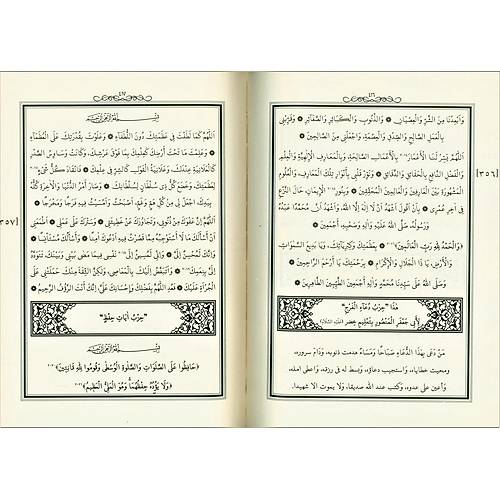 ٤٦
وَأَبْعِدْنَا مِنَ الشَّرِّ وَالْعِصْيَانِ ۞ وَالذُّنُوبِ وَالْكَبَائِرِ وَالصَّغَائِرِ ۞ وَقَرِّبْنِي
بِالْعَمَلِ الصَّالِحِ وَالصِّدْقِ وَالْعِصْمَةِ، وَاجْعَلْنِي مِنَ الصَّالِحِينَ ۞
اَللّٰهُمَّ يَسِّرْ لَنَا الْأَعْمَالَ بِالْأَعْمَالِ الصَّالِحَةِ، وَبِالْمَعَارِفِ الْإِلٰهِيَّةِ وَالْعِلْمِ
وَالْفَضْلِ النَّافِعِ بِالْحَقَائِقِ وَالْمَعَانِي ۞ وَنَوِّرْ قَلْبِي بِأَنْوَارِ تِلْكَ الْمَعَارِفِ، وَالْعُلُومِ
الْمَشْهُورَةِ بَيْنَ الْعَارِفِينَ وَالْعَالِمِينَ الْمُحَقِّقِينَ ۞ وَبِنُورِ الْإِيمَانِ حَالَ النَّزْعِ
فِي آخِرِ عُمْرِي ۞ بِأَنْ أَقُولَ أَشْهَدُ أَنْ لَا إِلٰهَ إِلَّا اللهُ، وَأَشْهَدُ أَنَّ مُحَمَّدًا عَبْدُهُ
وَرَسُولُهُ، صَلَّى اللهُ عَلَيْهِ وَآلِهِ وَصَحْبِهِ، أَجْمَعِينَ ۞
﴿وَالْحَمْدُ لِلّٰهِ رَبِّ الْعَالَمِينَ﴾ بِعَظَمَتِكَ وَكِبْرِيَائِكَ، وَيَا بَدِيعَ السَّمٰوَاتِ
وَالْأَرْضِ، يَا ذَا الْجَلَالِ وَالْإِكْرَامِ ۞ بِرَحْمَتِكَ يَا أَرْحَمَ الرَّاحِمِينَ ۞
وَصَلَّى اللهُ عَلَى سَيِّدِنَا مُحَمَّدٍ وَآلِهِ أَجْمَعِينَ الطَّيِّبِينَ الطَّاهِرِينَ ۞
هٰذَا "حِزْبُ دُعَاءِ الْفَرَجِ"
لِأَبِي جَعْفَرٍ الْمَنْصُورِ بِتَعْلِيمِ خِضْرٍ (عليه السلام)
مَنْ دَعَى بِهٰذَا الدُّعَاءِ صَبَاحًا وَمَسَاءً هدمت ذنوبه، وَدَام سروره،
ومحيت خطاياه، واستجيب دعاؤه، وبسط له في رزقه، واعطى امله،
وأعين على عدوه، وكتب عند الله صديقا، ولا يموت الا شهيدا.
[٣٥٦]
٤٧
بِسْمِ اللهِ الرَّحْمٰنِ الرَّحِيمِ
اَللّٰهُمَّ كَمَا لَطَفْتَ فِي عَظَمَتِكَ دُونَ اللُّطَفَاءِ ۞ وَعَلَوْتَ بِقُدْرَتِكَ عَلَى الْعُظَمَاءِ
۞ وَعَلِمْتَ مَا تَحْتَ أَرْضِكَ كَعِلْمِكَ بِمَا فَوْقَ عَرْشِكَ، وَكَانَتْ وَسَاوِسُ الصَّدْرِ
كَالْعَلَانِيَةِ عِنْدَكَ، وَعَلَانِيَةُ الْقَوْلِ كَالسِّرِّ فِي عِلْمِكَ ۞ فَانْقَادَ كُلُّ شَيْءٍ
لِعَظَمَتِكَ، وَخَضَعَ كُلُّ ذِي سُلْطَانٍ لِسُلْطَانِكَ ۞ وَصَارَ أَمْرُ الدُّنْيَا وَالْآخِرَةِ كُلُّهُ
بِيَدِكَ، اجْعَلْ لِي مِنْ كُلِّ هَمٍّ وَغَمٍّ، أَصْبَحْتُ وَأَمْسَيْتُ فِيهِ فَرَجًا وَمَخْرَجًا ۞
اَللّٰهُمَّ إِنَّ عَفْوَكَ مِنْ ذُنُوبِي، وَتَجَاوُزَكَ عَنْ خَطِيئَتِي ۞ وَسَتْرَكَ عَلَى عَمَلِي ۞ أَطْمَعَنِي
أَنْ أَسْأَلَكَ مَا لَا أَسْتَوْجِبُهُ مِمَّا قَصَّرْتُ فِيهِ أَدْعُوكَ آمِنًا ۞ وَأَسْأَلُكَ مُسْتَأْنِسًا ۞
وَإِنَّكَ لَمُحْسِنٌ إِلَيَّ ۞ وَإِنِّي لَمُسِيءٌ إِلَى نَفْسِي فِيمَا مَعْنَى بَيْنِي وَبَيْنَكَ، تَتَوَدَّدُ
إِلَيَّ بِنِعْمَتِكَ ۞ وَأَتَبَغَّضُ إِلَيْكَ بِالْمَعَاصِي، وَلٰكِنَّ الثِّقَةَ مِنْكَ حَمَلَتْنِي عَلَى
الْجُرْأَةِ عَلَيْكَ ۞ فَعُدِ اللّٰهُمَّ بِفَضْلِكَ وَإِحْسَانِكَ عَلَيَّ، إِنَّكَ أَنْتَ الرَّؤُوفُ الرَّحِيمُ ۞
"حِزْبُ آيَاتِ حِفْظٍ"
بِسْمِ اللهِ الرَّحْمٰنِ الرَّحِيمِ
﴿حَافِظُوا عَلَى الصَّلَوَاتِ وَالصَّلٰوةِ الْوُسْطٰى وَقُومُوا لِلّٰهِ قَانِتِينَ﴾
﴿وَلَا يَؤُدُهُ حِفْظُهُمَا وَهُوَ الْعَلِيُّ الْعَظِيمُ﴾
[٣٥٧]